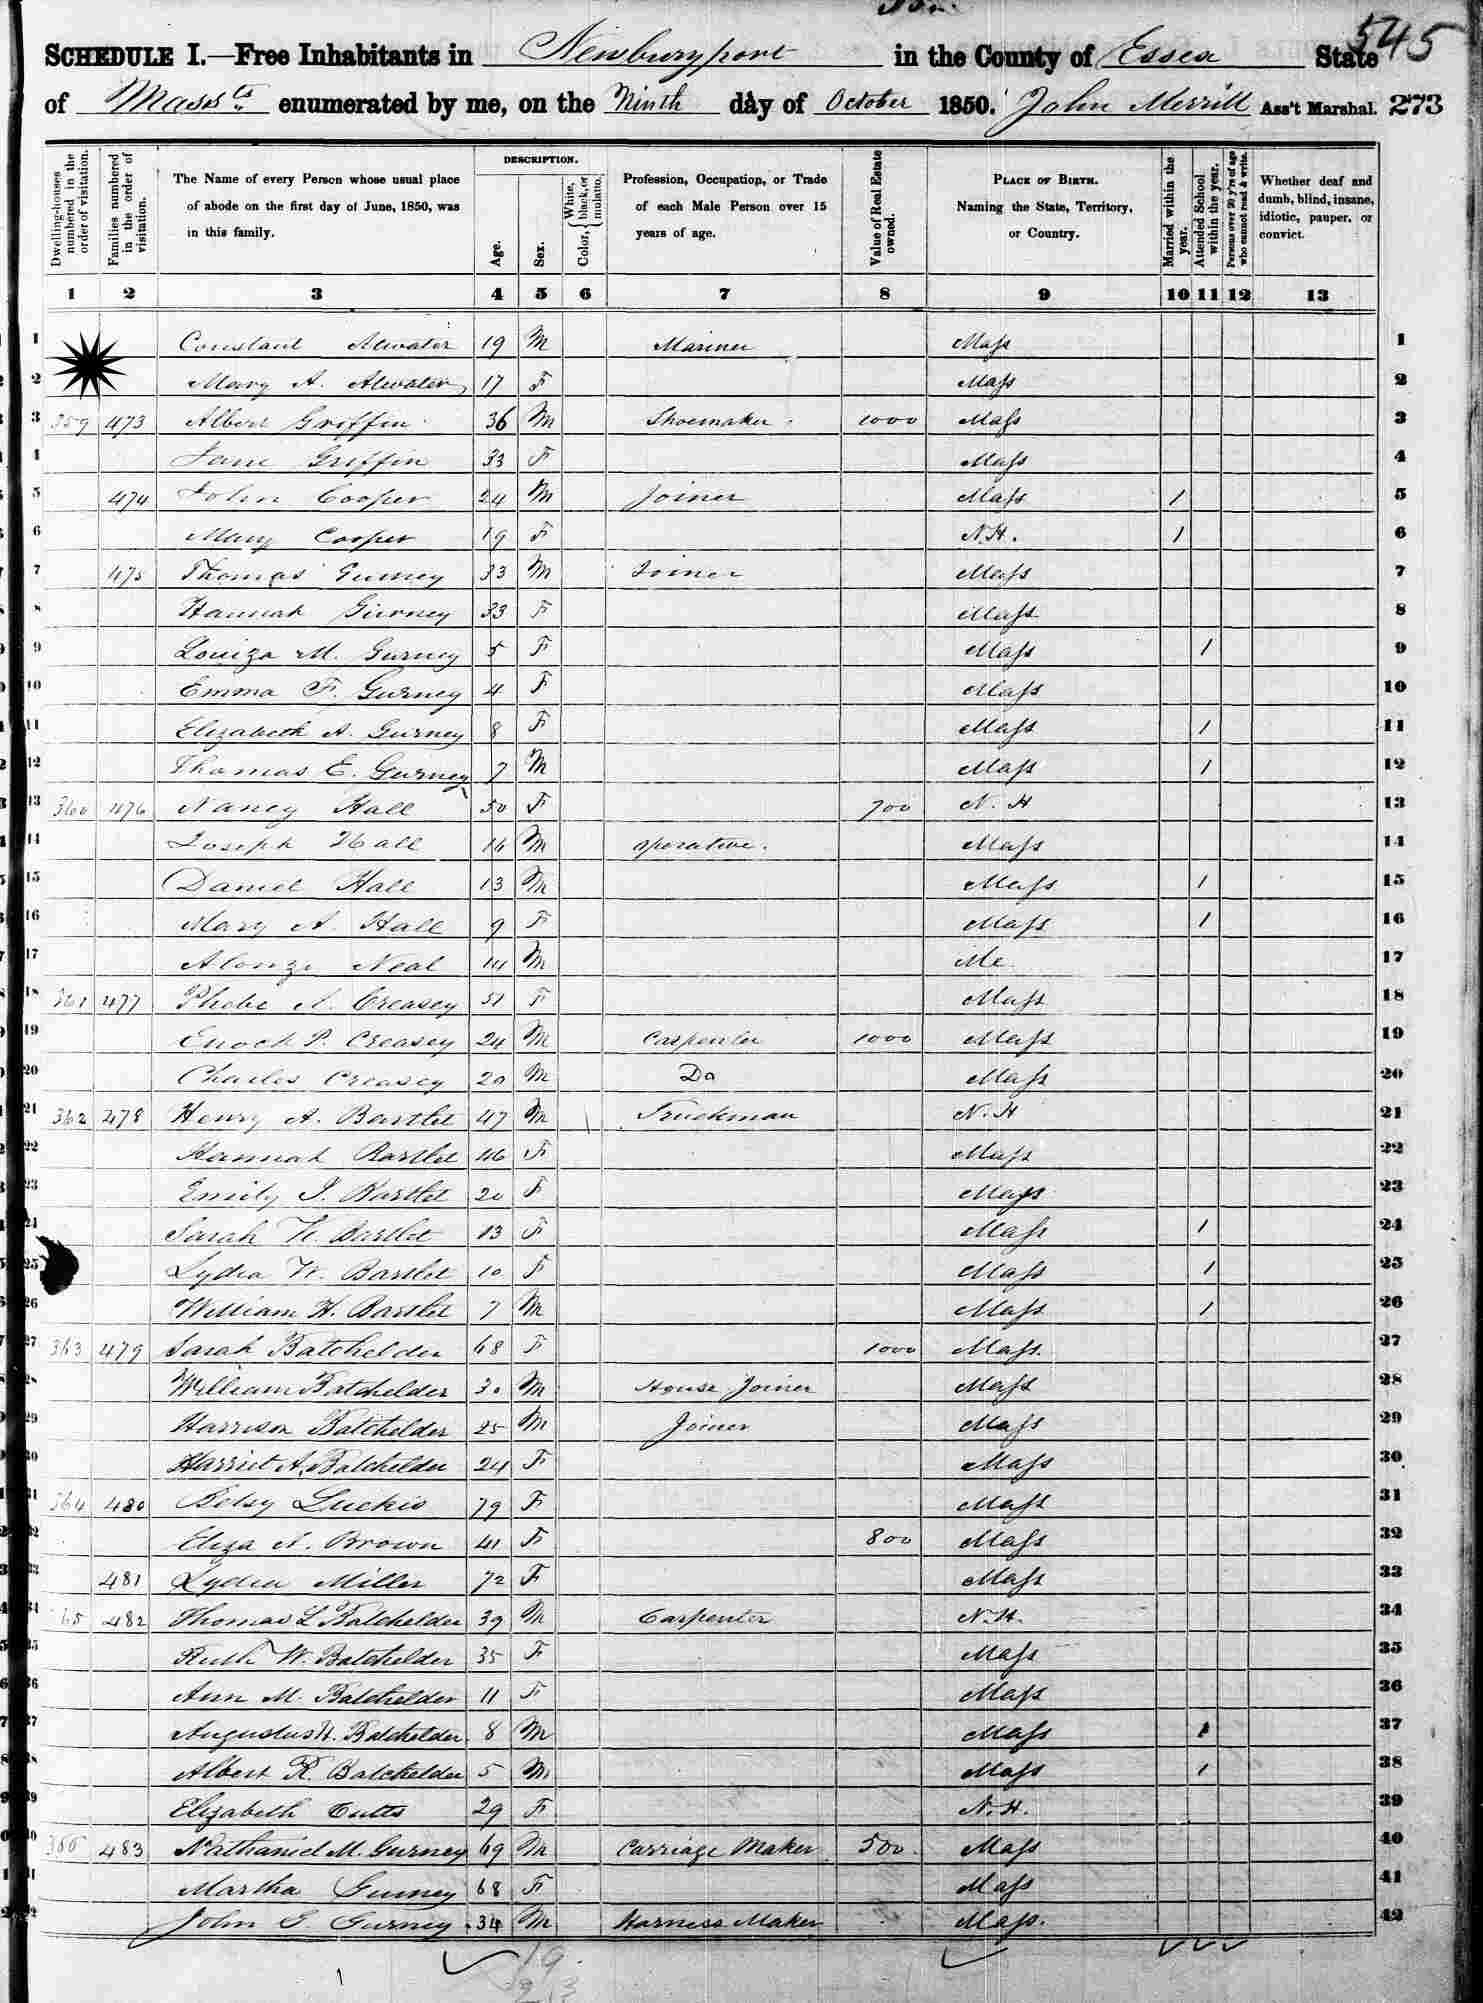 545
SCHEDULE I.—Free Inhabitants in Newburyport in the County of Essex State
of Mass.ts enumerated by me, on the Ninth day of October 1850. John Merrill Ass't Marshal. 273
Dwelling-houses numbered in the order of visitation.
Families numbered in the order of visitation.
The Name of every Person whose usual place of abode on the first day of June, 1850, was in this family.
DESCRIPTION.
Age.
Sex.
Color, White, black, or mulatto.
Profession, Occupation, or Trade of each Male Person over 15 years of age.
Value of Real Estate owned.
PLACE OF BIRTH. Naming the State, Territory, or Country.
Married within the year.
Attended School within the year.
Persons over 20 y'rs of age who cannot read & write.
Whether deaf and dumb, blind, insane, idiotic, pauper, or convict.
1 2 3 4 5 6 7 8 9 10 11 12 13
1 Constant Atwater 19 M Mariner Mass 1
2 Mary A. Atwater 17 F Mass 2
3 359 473 Albert Griffin 36 M Shoemaker 1000 Mass 3
4 Jane Griffin 33 F Mass 4
5 474 John Cooper 24 M Joiner Mass 1 5
6 Mary Cooper 19 F N.H. 1 6
7 475 Thomas Gurney 33 M Joiner Mass 7
8 Hannah Gurney 33 F Mass 8
9 Louiza M. Gurney 5 F Mass 1 9
10 Emma F. Gurney 4 F Mass 10
11 Elizabeth A. Gurney 8 F Mass 1 11
12 Thomas E. Gurney 7 M Mass 1 12
13 360 476 Nancy Hall 50 F 700 N. H 13
14 Joseph Hall 16 M operative. Mass 14
15 Daniel Hall 13 M Mass 1 15
16 Mary A. Hall 9 F Mass 1 16
17 Alonzo Neal 14 M Me. 17
18 361 477 Phebe A. Creasey 51 F Mass 18
19 Enoch P. Creasey 24 M Carpenter 1000 Mass 19
20 Charles Creasey 20 M Do Mass 20
21 362 478 Henry A. Bartlet 47 M Truckman N. H 21
22 Hannah Bartlet 46 F Mass 22
23 Emily J. Bartlet 20 F Mass 23
24 Sarah H. Bartlet 13 F Mass 1 24
25 Lydia W. Bartlet 10 F Mass 1 25
26 William H. Bartlet 7 M Mass 1 26
27 363 479 Sarah Batchelder 68 F 1000 Mass. 27
28 William Batchelder 30 M House Joiner Mass 28
29 Harrison Batchelder 25 M Joiner Mass 29
30 Harriet A. Batchelder 24 F Mass 30
31 364 480 Betsy 79 F Mass 31
32 Eliza A. Brown 41 F 800 Mass 32
33 481 Lydia Miller 72 F Mass 33
34 365 482 Thomas L Batchelder 39 M Carpenter N.H. 34
35 Ruth W. Batchelder 35 F Mass 35
36 Ann M. Batchelder 11 F Mass 36
37 Augustus H. Batchelder 8 M Mass 1 37
38 Albert R. Batchelder 5 M Mass 1 38
39 Elizabeth Cutts 29 F N.H. 39
40 366 483 Nathaniel M. Gurney 69 M Carriage Maker 500 Mass 40
41 Martha Gurney 68 F Mass 41
42 John G. Gurney 34 M Harness Maker Mass. 42
19